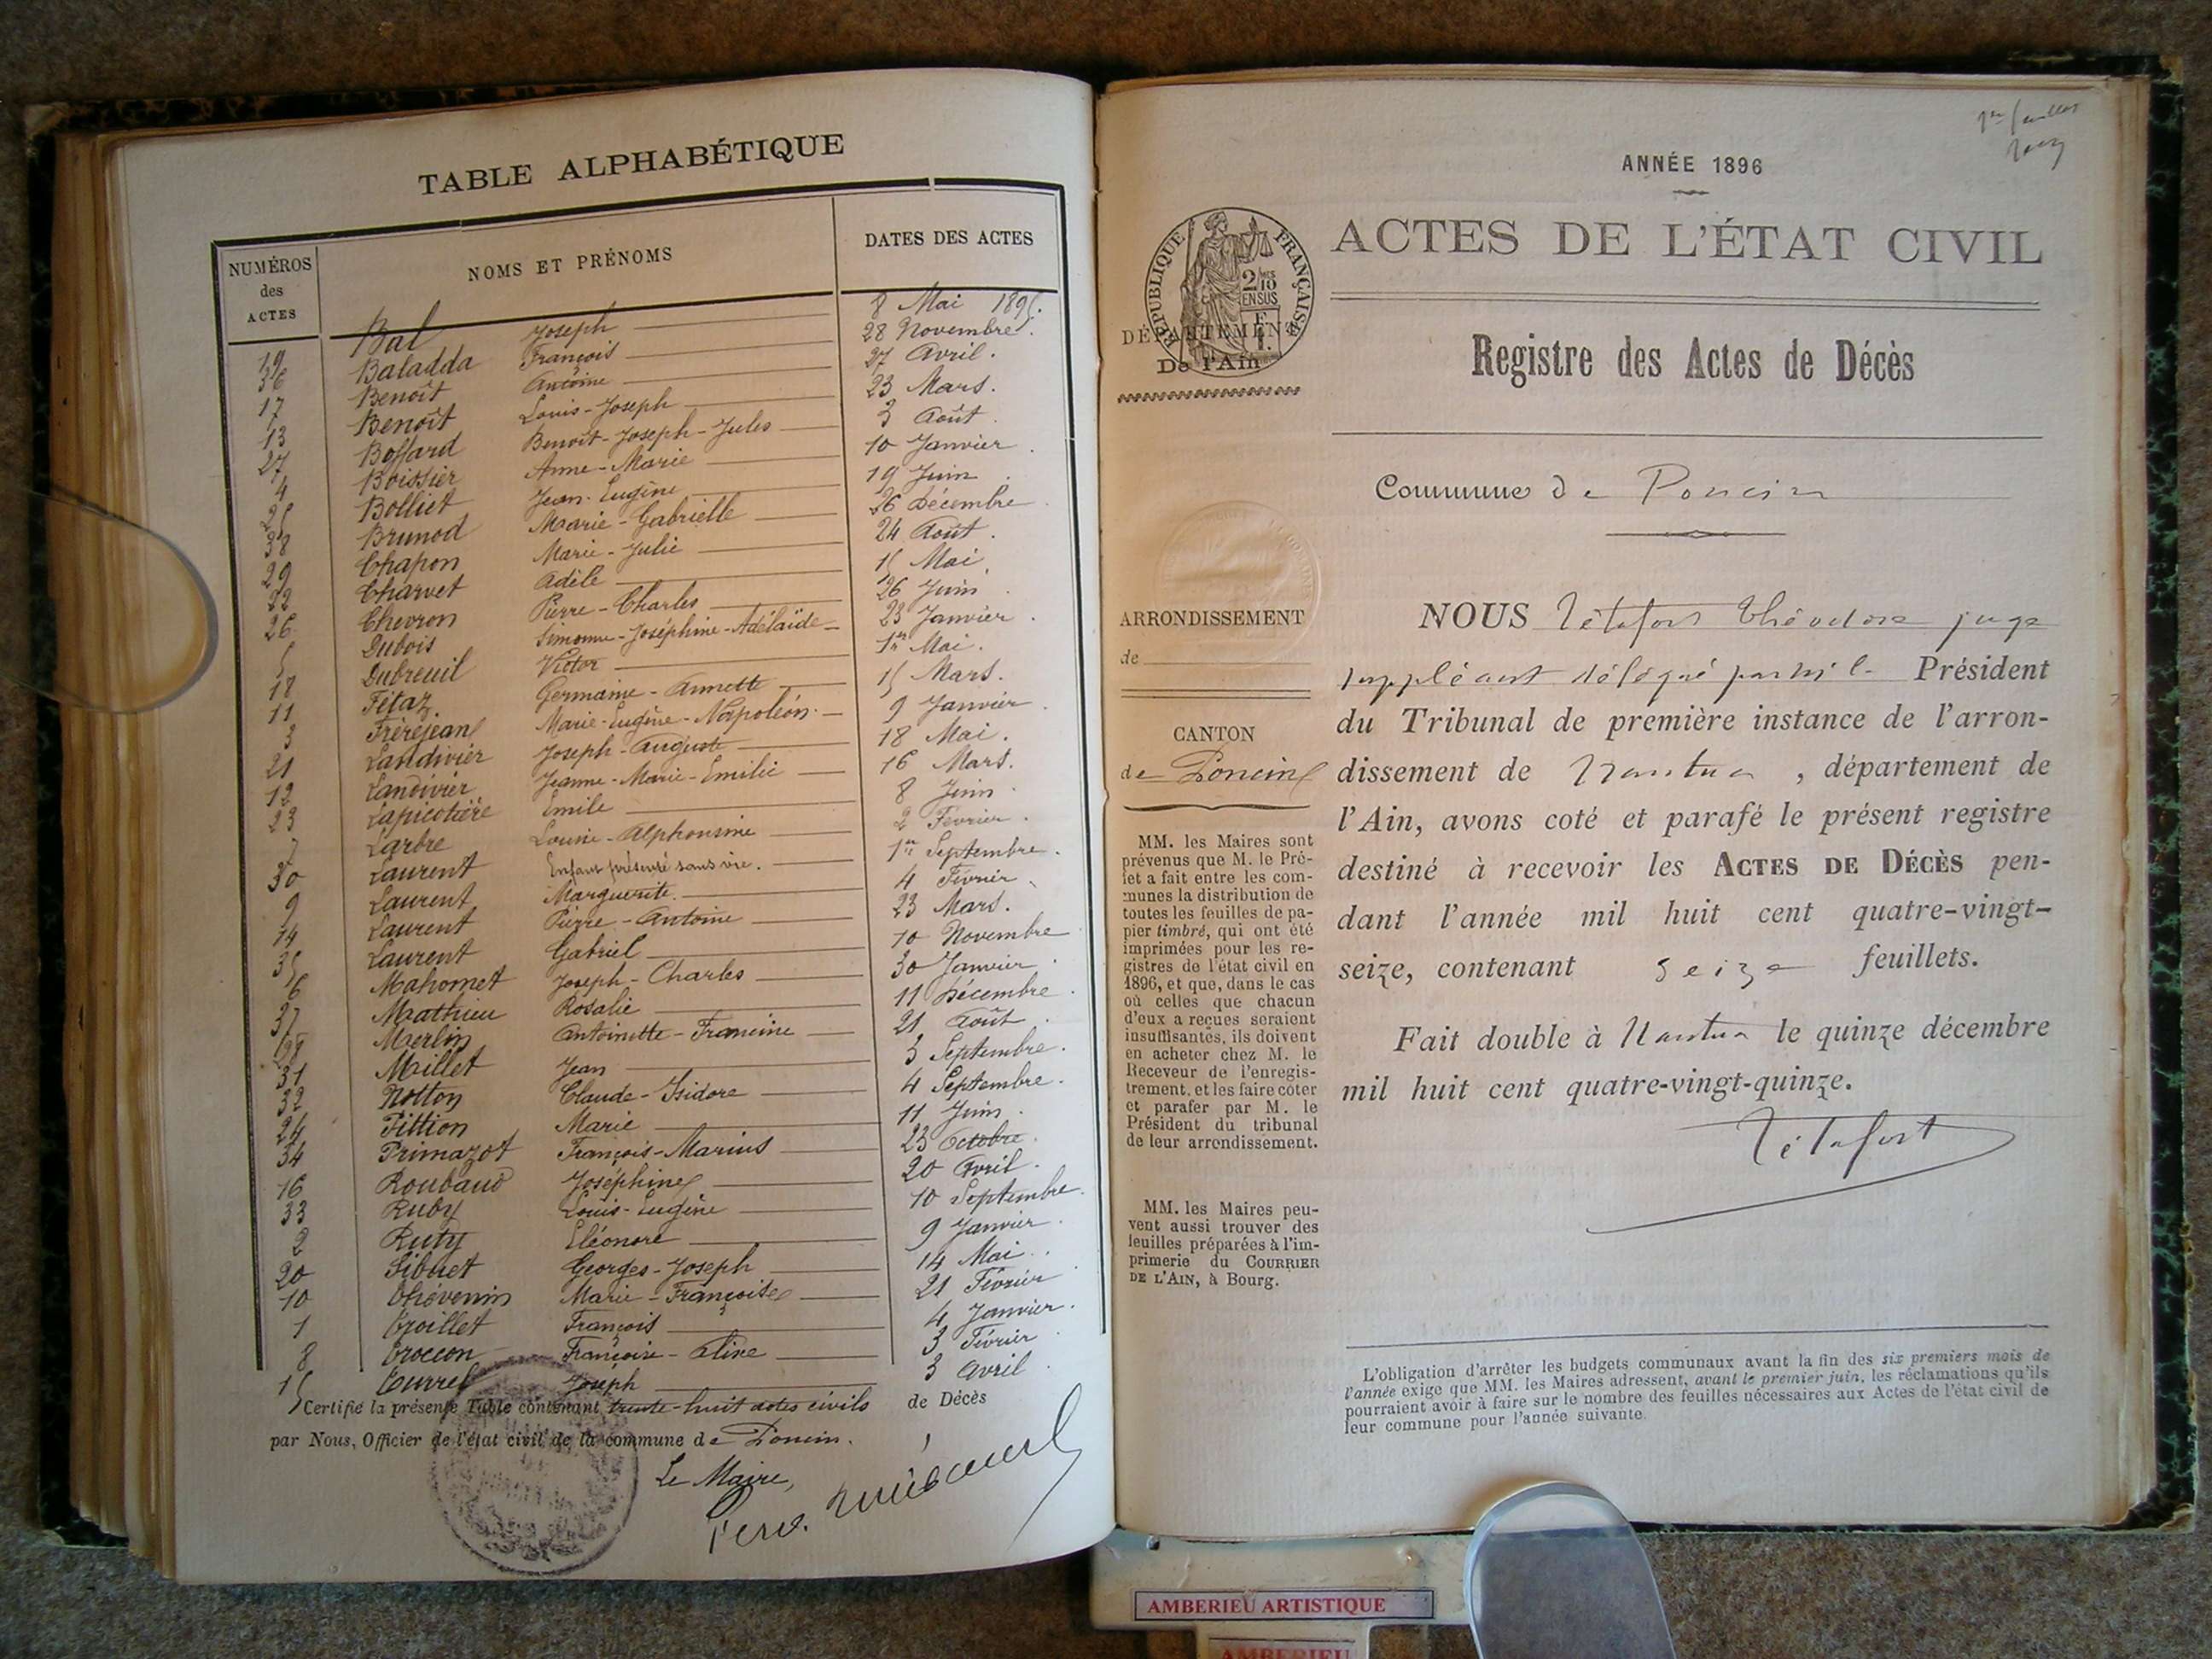 TABLE ALPHABÉTIQUE
NUMÉROS des ACTES NOMS ET PRÉNOMS DATES DES ACTES
19 Bal Joseph 8 Mai 1895.
36 Baladda François 28 Novembre.
17 Benoît Antoine 27 Avril.
13 Benoît Louis-Joseph 23 Mars.
27 Boffard Benoît-Joseph-Jules 3 Août.
4 Boissier Anne-Marie 10 Janvier.
25 Bolliet Jean-Eugène 19 Juin.
38 Brunod Marie-Gabrielle 26 Décembre.
29 Chapon Marie-Julie 24 Août.
22 Charvet Adèle 15 Mai.
26 Chevron Pierre-Charles 26 Juin.
5 Dubois Simonne-Joséphine-Adélaïde 23 Janvier.
18 Dubreuil Victor 1er Mai.
11 Fétaz Germaine-Annette 15 Mars.
3 Frèrejean Marie-Eugène-Napoléon 9 Janvier.
21 Landivier Joseph-Auguste 18 Mai.
12 Landivier Jeanne-Marie-Emilie 16 Mars.
23 Lapicotière Emile 8 Juin.
7 Larbre Louise-Alphonsine 2 Février.
30 Laurent Enfant présenté sans vie. 1er Septembre.
9 Laurent Marguerite. 4 Février.
14 Laurent Pierre-Antoine 23 Mars.
35 Laurent Gabriel 10 Novembre
6 Mahomet Joseph-Charles 30 Janvier.
37 Mathieu Rosalie 11 Décembre.
28 Merlin Antoinette-Francine 21 Août.
31 Millet Jean 3 Septembre.
32 Notton Claude-Isidore 4 Septembre.
24 Pittion Marie 11 Juin.
34 Primazot François-Marius 23 Octobre.
16 Roubaud Joséphine 20 Avril.
33 Ruby Louis-Eugène 10 Septembre.
2 Ruty Eléonore 9 Janvier.
20 Sibuet Georges-Joseph 14 Mai.
10 Thévenin Marie-Françoise 21 Février
1 Troillet François 4 Janvier.
8 Troccon Françoise-Eline 3 Février
15 Touvrel Joseph 3 Avril
Certifié la présente Table contenant trente-huit actes civils de Décès
par Nous, Officier de l'état civil de la commune de Poncin.
Le Maire,
ANNÉE 1896
ACTES DE L'ÉTAT CIVIL
RÉPUBLIQUE FRANÇAISE
2/10mes
EN SUS
DÉPARTEMENT
De l'Ain
Registre des Actes de Décès
Commune de Poncin
ARRONDISSEMENT
de
CANTON
de Poncin
MM. les Maires sont
prévenus que M. le Pré-
fet a fait entre les com-
munes la distribution de
toutes les feuilles de pa-
pier timbré, qui ont été
imprimées pour les re-
gistres de l'état civil en
1896, et que, dans le cas
où celles que chacun
d'eux a reçues seraient
insuffisantes, ils doivent
en acheter chez M. le
Receveur de l'enregis-
trement, et les faire coter
et parafer par M. le
Président du tribunal
de leur arrondissement.
MM. les Maires peu-
vent aussi trouver des
feuilles préparées à l'im-
primerie du COURRIER
DE L'AIN, à Bourg.
NOUS Tétafort Théodore juge
suppléant délégué par M. le Président
du Tribunal de première instance de l'arron-
dissement de Nantua, département de
l'Ain, avons coté et parafé le présent registre
destiné à recevoir les ACTES DE DÉCÈS pen-
dant l'année mil huit cent quatre-vingt-
seize, contenant seize feuillets.
Fait double à Nantua le quinze décembre
mil huit cent quatre-vingt-quinze.
Tétafort
L'obligation d'arrêter les budgets communaux avant la fin des six premiers mois de
l'année exige que MM. les Maires adressent, avant le premier juin, les réclamations qu'ils
pourraient avoir à faire sur le nombre des feuilles nécessaires aux Actes de l'état civil de
leur commune pour l'année suivante.
AMBERIEU ARTISTIQUE
AMBERIEU